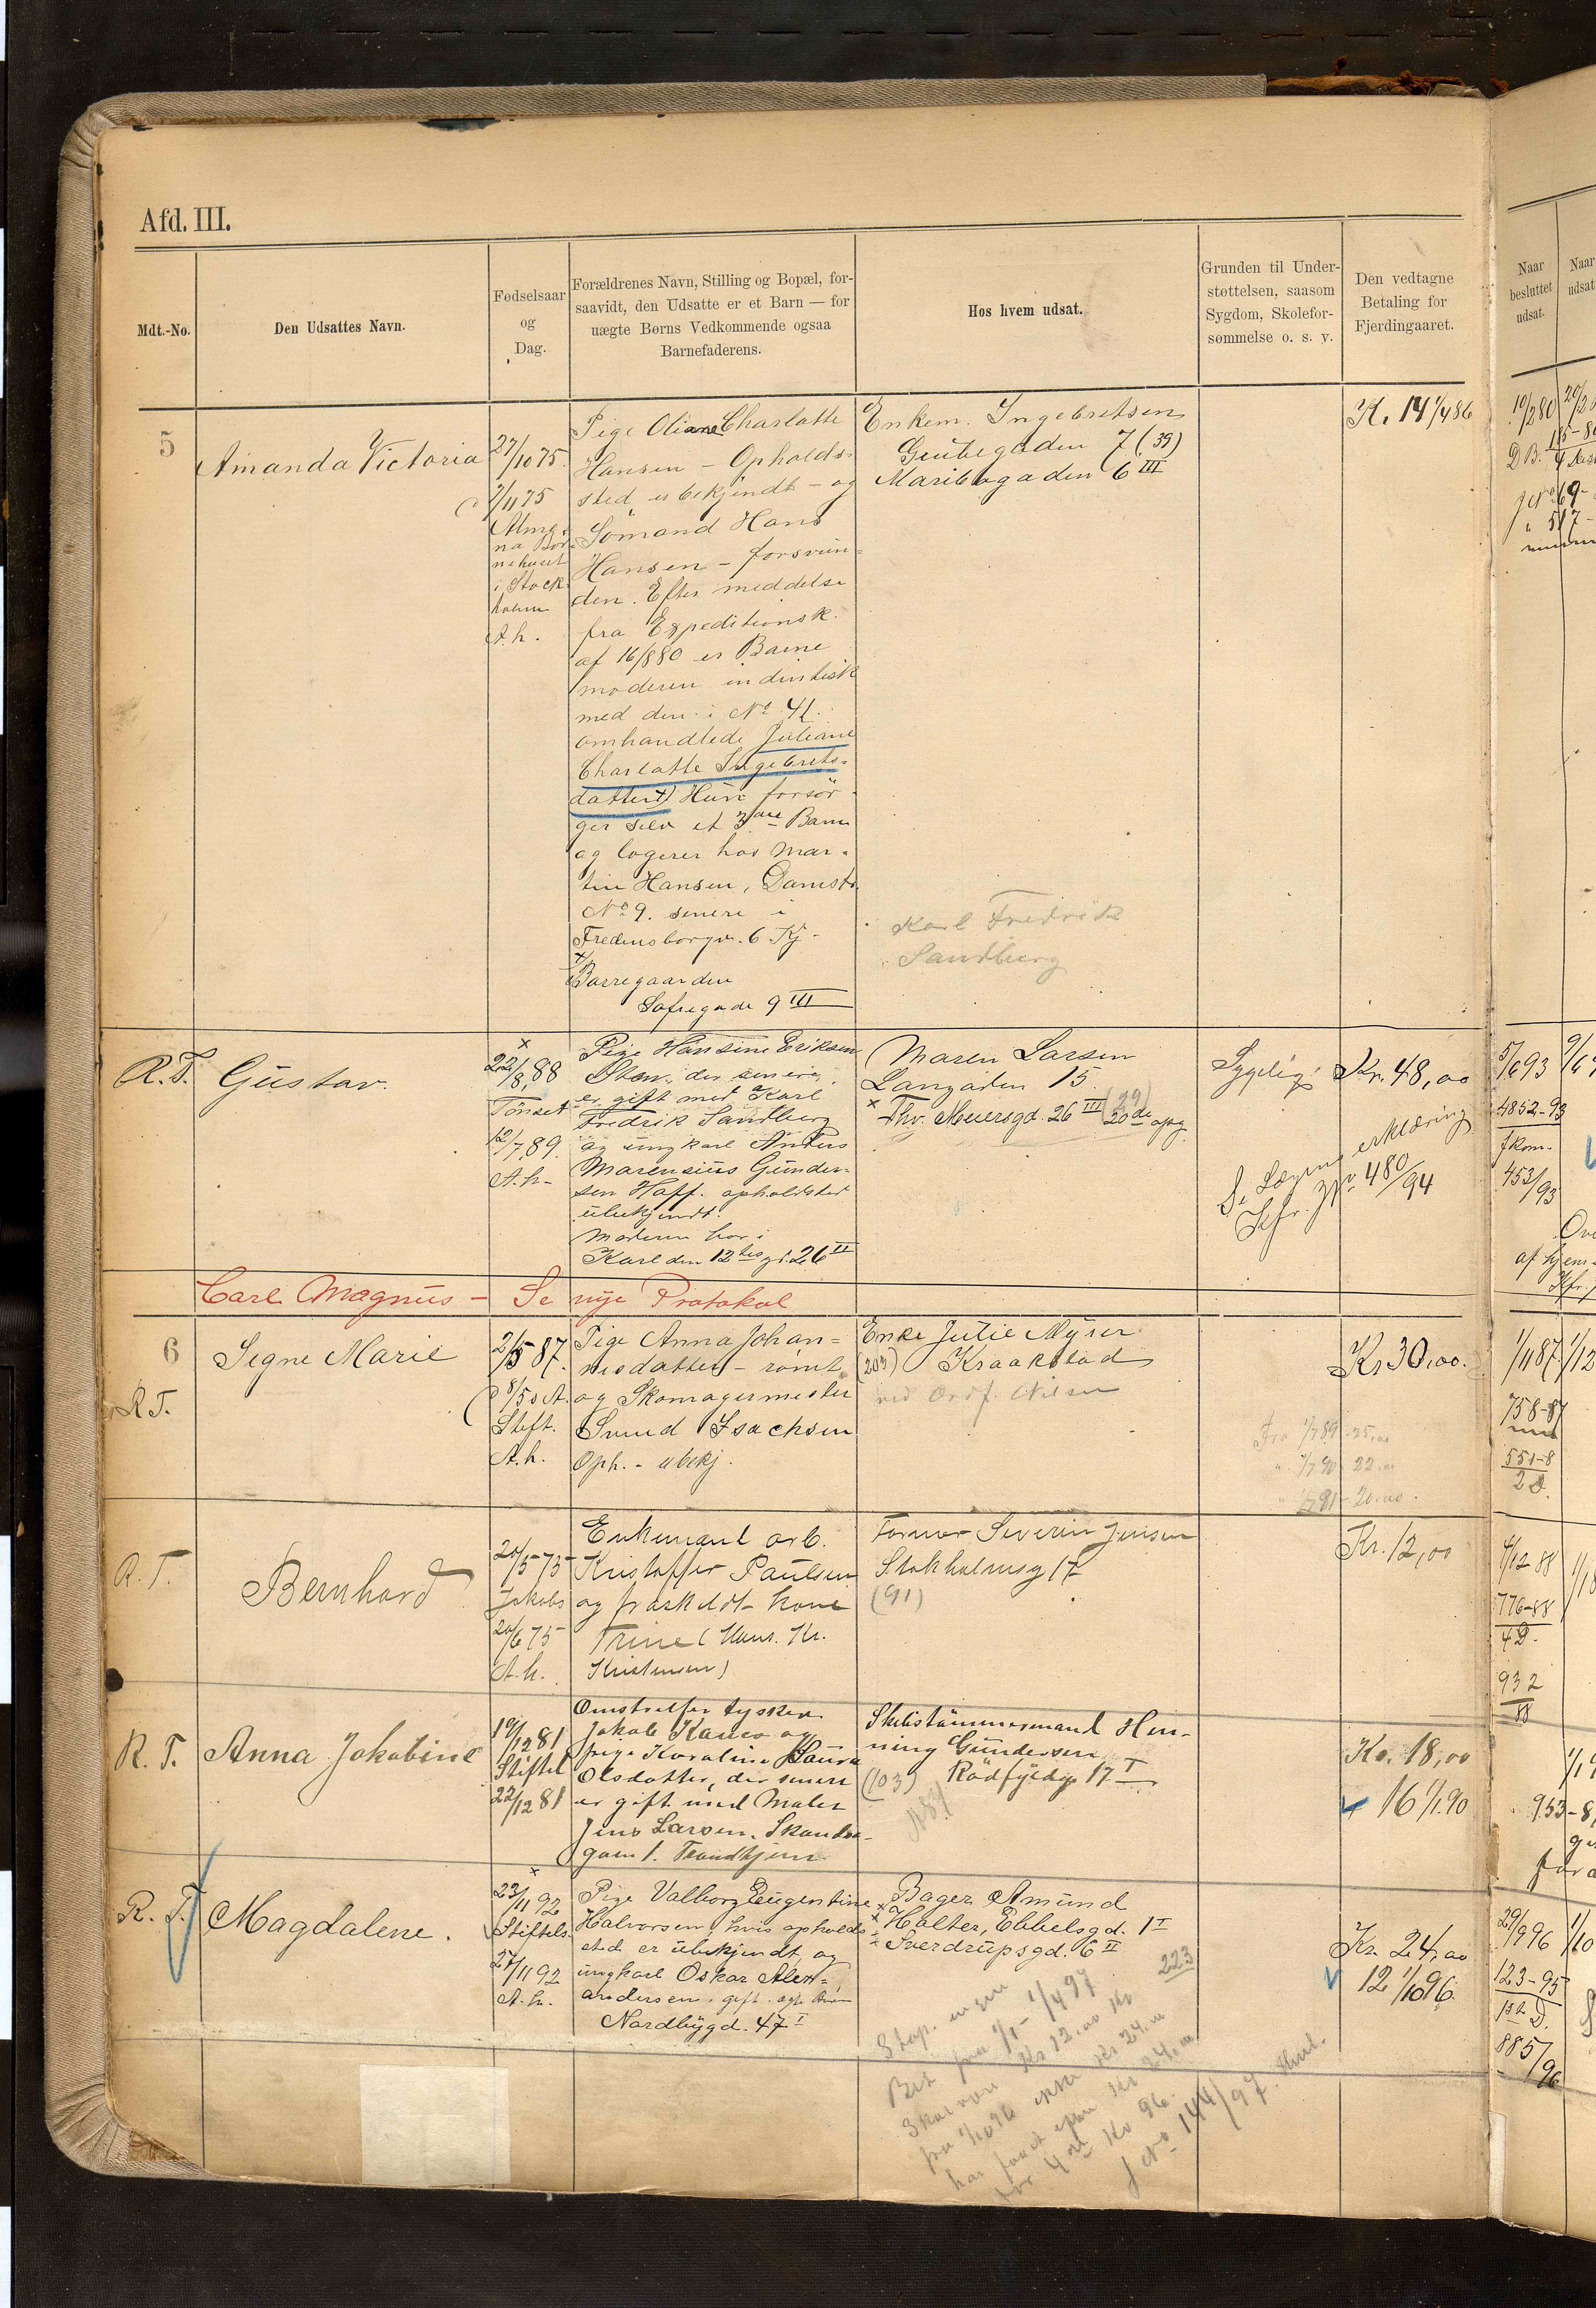 Afd. III.
Mdt.-No.
Den Udsattes Navn.
Fødselsaar
og
Dag.
Forældrenes Navn, Stilling og Bopæl, for-
saavidt, den Udsatte er et Barn — for
uægte Børns Vedkommende ogsaa
Barnefaderens.
Hos hvem udsat.
Grunden til Under-
støttelsen, saasom
Sygdom, Skolefor-
sømmelse o. s. v.
Den vedtagne
Betaling for
Fjerdingaaret.
Naar
besluttet
udsat.
Naar
udsat
5
Amanda Victoria
27/10 75.
7/11 75
Alme-
na Bør-
nehuset
i Stock
holm
A. h.
Pige Oliane Charlotte
Hansen - Opholds-
sted ubekjendt - og
Sömand Hans
Hansen - forsvun-
den. Efter meddelse
fra Expeditionsk.
af 16/8 80 er Barne
moderen indintisk
med den i No 41.
omhandlede Juliane
Charlotte Ingebrets-
datter +) Hun forsör-
ger selv et 3die Barn
og logerer hos Mar-
tin Hansen, Damstr.
No 9. senere i
Fredensborgv. 6 Kj.
+)
Borregaarden
Sofiegade 9 III
Enkem. Ingebretsen
Grubegaden 7 (39)
Maribogaden 6 III
Karl Fredrik
Sandberg
K. 14 1/4 86
10/2 80
R. T.
Gustav.
x
22/8 88
Tönset
12/7 89.
A. h.
Pige Hansine Eriksen
Steen, der senere
er gift med Karl
Fredrik Sandberg
og ungkarl Anders
Marensius Gunder-
sen Hoff. opholdsted
ubekjendt.
Moderen bor i
Karl den 12tes gd. 26 II
Maren Larsen
Langaden 15.
x Thv. Meiersgd. 26 III (29) 20de opg.
Sygelig
Se Lægeerklæring
Kfr. Jno 480/94
Kr. 48,00
5/6 93
4852-93
fkom.
453/93
Carl Magnus - Se nye Protokol
6
R T.
Signe Marie
2/5 87.
8/5 s A.
Stift.
A. h.
Pige Anna Johan-
nesdatter - römt
og Skomagermester
Svend Isachsen
Oph. - ubekj.
Enke Julie Myrer
(203) Kraakstad
ved Ordf. Nilsen
Fra 1/7 89 - 25,00
" 1/7 90 22,00
" 1/7 91 - 20,00.
Kr 30,00.
1/11 87
758-87
551-8
2 D.
R. T.
Bernhard
20/5 75
Jakobs
20/6 75
A. h.
Enkemand arb.
Kristoffer Paulsen
og fraskildt kone
Trine (Hans. Kr.
Kristensen)
Former Severin Jensen
Stokholmsg 17
(91)
Kr. 12,00
4/12 88
776-88
4 D.
932
88
R. T.
Anna Jakobine
19/12 81
Stiftel
22/12 81
Omstreifer tysker
Jakob Karco og
pige Karoline Laura
Olsdatter, der senere
er gift med Maler
Jens Larsen. Skanda-
gaen 1. Trondhjem.
Skibstömmermand Hen-
ning Gundersen
(103) Rödfyldg 17 I
Kr. 18,00
16 1/1.90
953-8
R. T.
Magdalene.
x
23/11 92
Stiftels-
27/11 92
A. h.
Pige Valborg Eugentine
Halvorsen, hvis opholds
sted er ubekjendt, og
ungkarl Oskar Alex-
andersen, gift
Nordbygd. 47 I
Bager Amund
x Holter, Ebbelsgd. 1 I
Sverdrupsgd. 6 II
223
Kr. 24,00
12 1/10 96.
29/9 96
123-95
1ste D.
885/96
Bet fra 1/1 - 1/4 97
Kr 12,00
Kr 24,00
J No 144/97